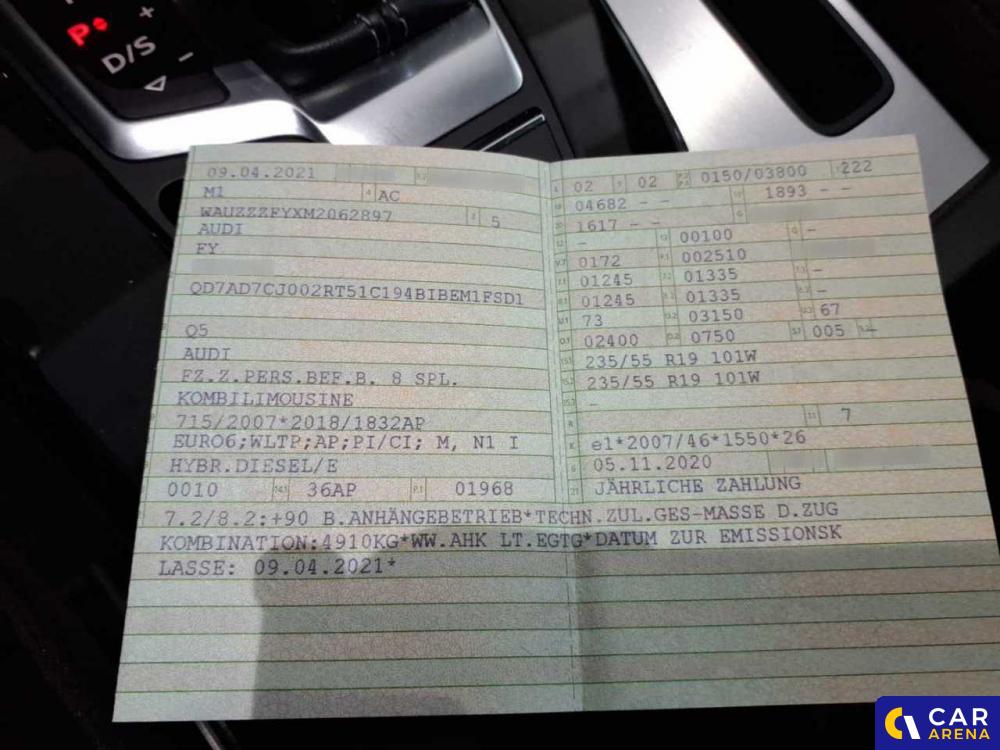 P
+
D/S
−
09.04.2021
M1 4 AC
WAUZZZFYXM2062897 3 5
AUDI
FY
QD7AD7CJ002RT51C194BIBEM1FSD1
Q5
AUDI
FZ.Z.PERS.BEF.B. 8 SPL.
KOMBILIMOUSINE
715/2007*2018/1832AP
EURO6;WLTP;AP;PI/CI; M, N1 I
HYBR.DIESEL/E
0010 14.1 36AP P.1 01968
L 02 9 02 P.2 P.4 0150/03800 T 222
18 04682 - - 19 1893 - -
20 1617 - - G
12 - 13 00100 Q -
V.7 0172 F.1 002510
7.1 01245 7.2 01335 7.3 -
8.1 01245 8.2 01335 8.3 -
U.1 73 U.2 03150 U.3 67
O.1 02400 O.2 0750 S.1 005 S.2 -
15.1 235/55 R19 101W
15.2 235/55 R19 101W
15.3 -
R 11 7
K e1*2007/46*1550*26
6 05.11.2020
21 JÄHRLICHE ZAHLUNG
7.2/8.2:+90 B.ANHÄNGEBETRIEB*TECHN.ZUL.GES-MASSE D.ZUG
KOMBINATION:4910KG*WW.AHK LT.EGTG*DATUM ZUR EMISSIONSK
LASSE: 09.04.2021*
CAR
ARENA